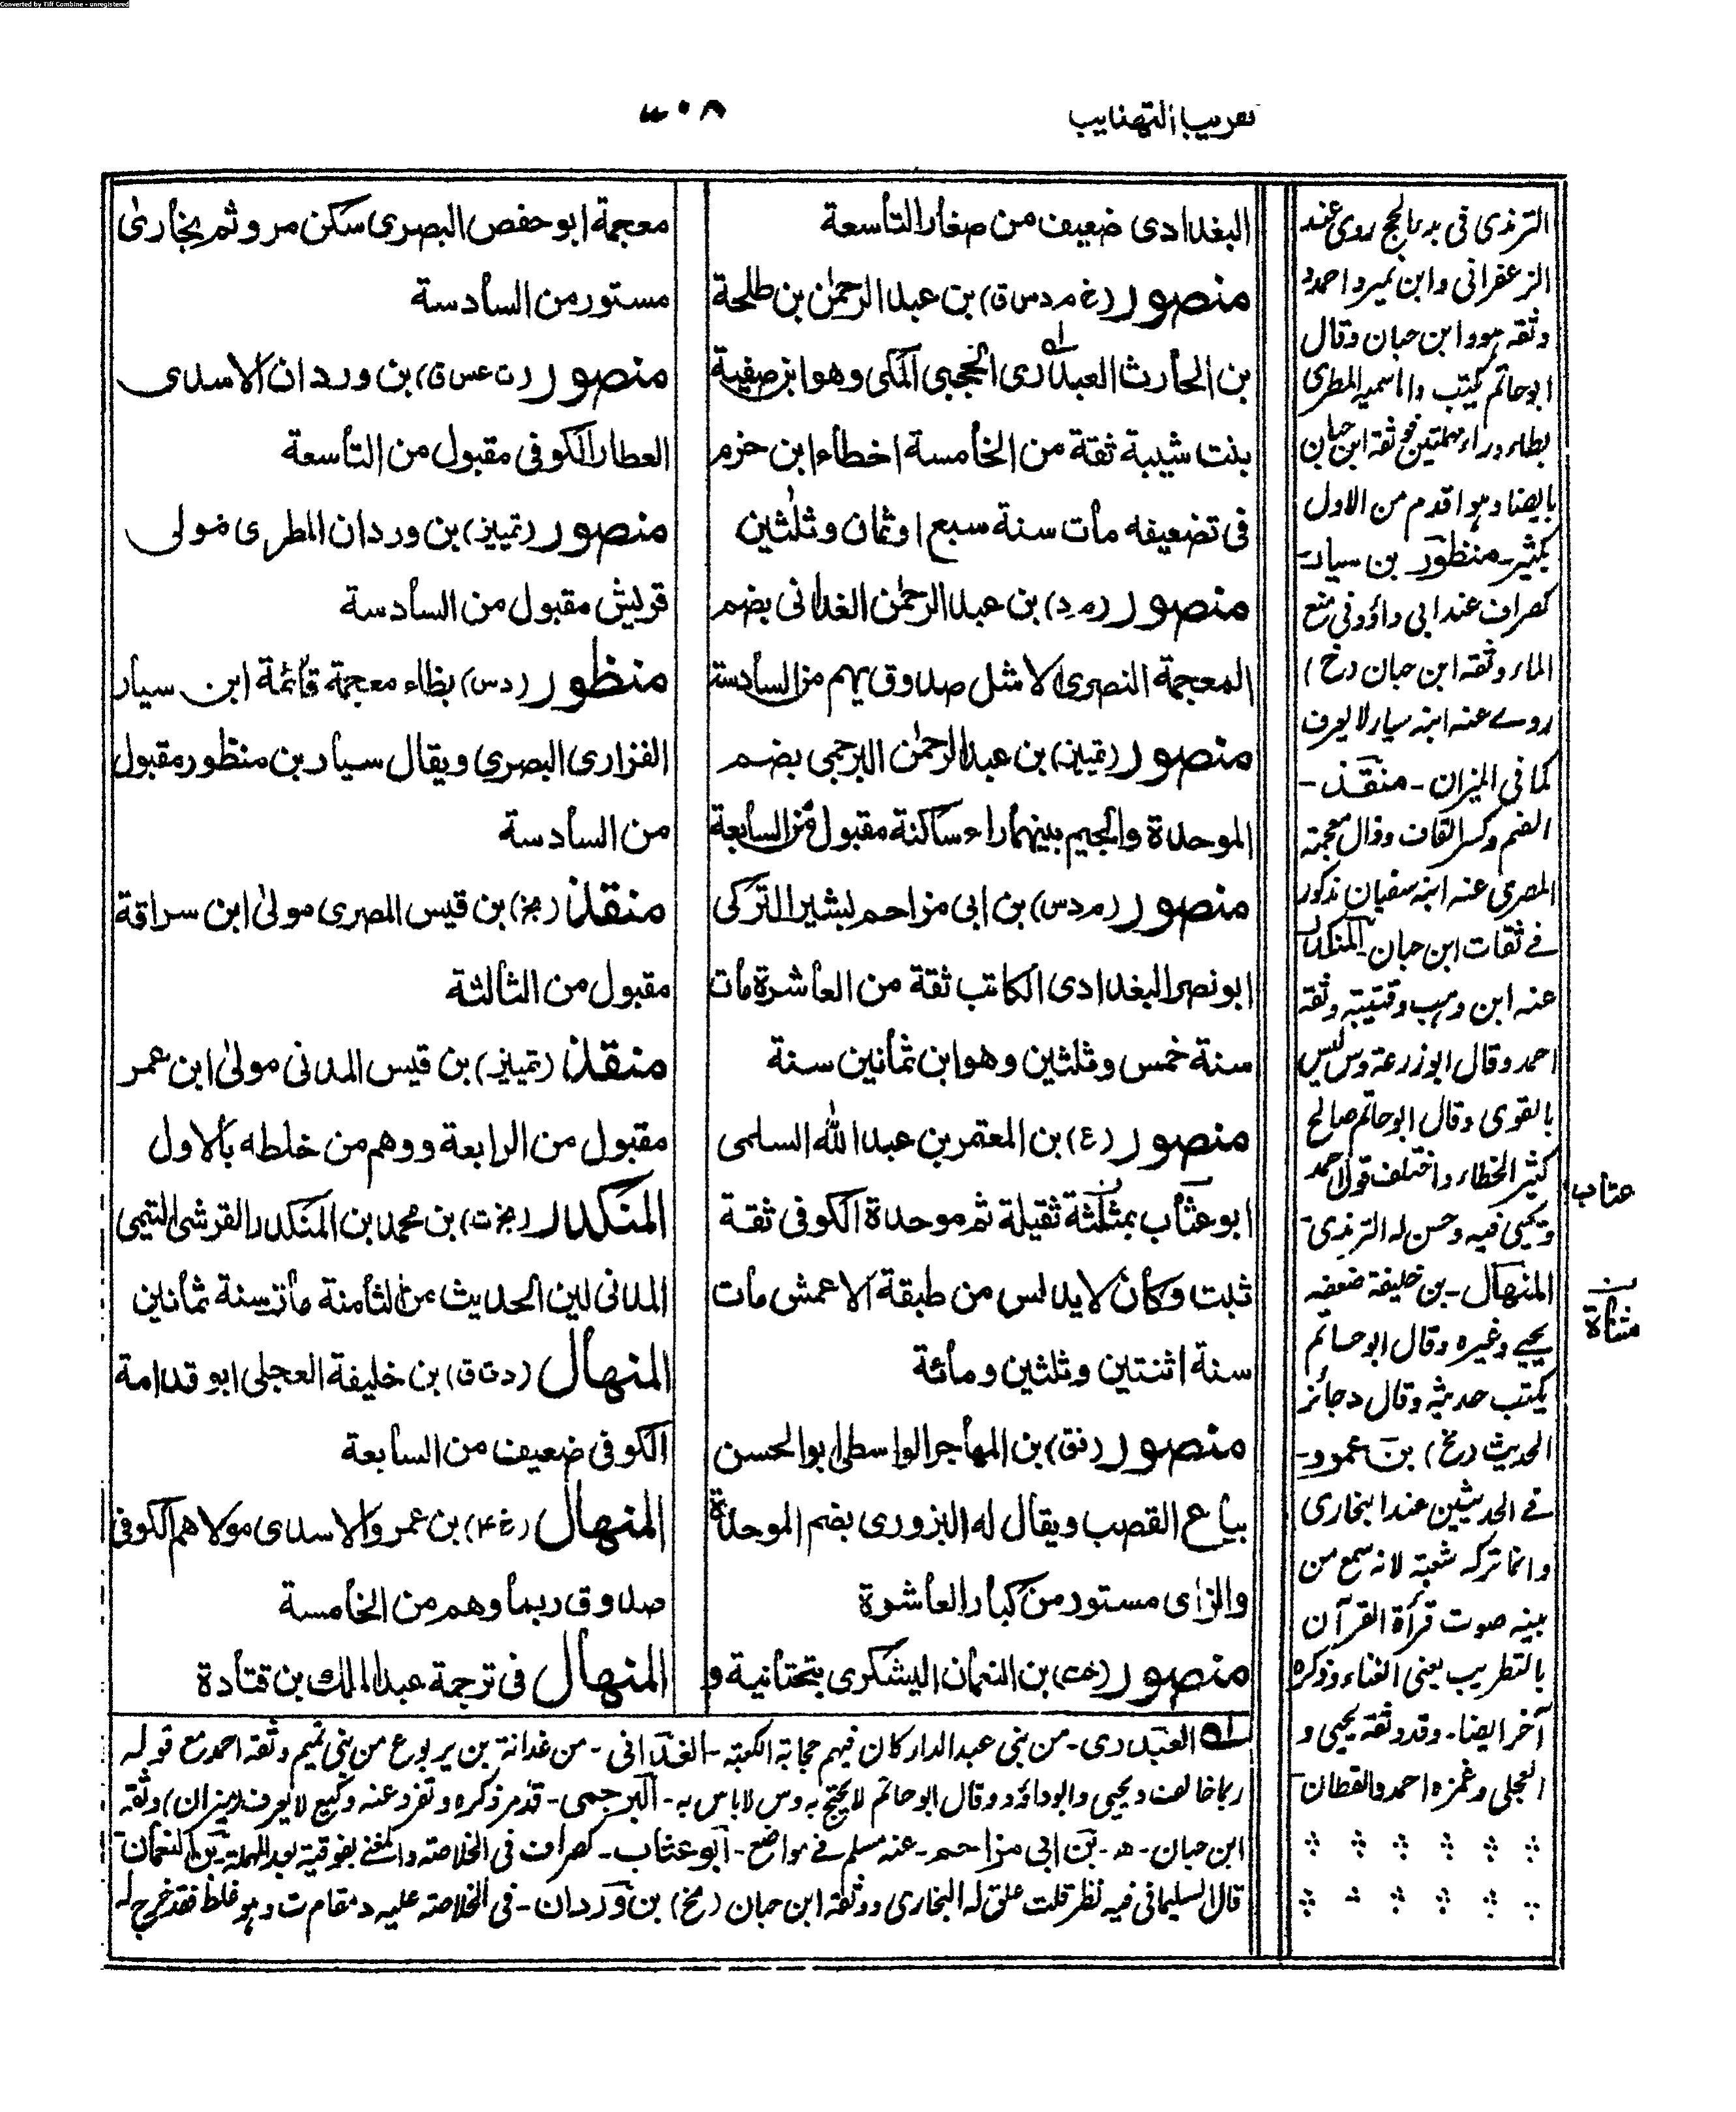 Converted by Tiff Combine - unregistered
تقريب التهذيب
البغدادى ضعيف من صغار التاسعة
منصور (خ م د س ق) بن عبد الرحمٰن بن طلحة
بن الحارث العبدرى الحجبى المكى وهو ابن صفية
بنت شيبة ثقة من الخامسة اخطاء ابن حزم
فى تضعيفه مات سنة سبع اوثمان وثلثين
منصور (م د) بن عبد الرحمٰن الغدانى بضم
المعجمة النصرى الاشل صدوق يهم من السادسة
منصور (تمييز) بن عبد الرحمٰن البرجمى بضم
الموحدة والجيم بينهما راء ساكنة مقبول من السابعة
منصور (م د س) بن ابى مزاحم بشير التركى
ابو نصر البغدادى الكاتب ثقة من العاشرة مات
سنة خمس وثلثين وهو ابن ثمانين سنة
منصور (ع) بن المعتمر بن عبد الله السلمى
ابو عثاب بمثلثة ثقيلة ثم موحدة الكوفى ثقة
ثبت وكان لا يدلس من طبقة الاعمش مات
سنة اثنتين وثلثين ومائة
منصور (فق) بن المهاجر الواسطى ابو الحسن
بياع القصب ويقال له البزورى بضم الموحدة
والزاى مستور من كبار العاشرة
منصور (خت) بن النعمان اليشكرى بتحتانية و
معجمة ابو حفص البصرى سكن مرو ثم بخارىٰ
مستور من السادسة
منصور (ت عس ق) بن وردان الاسدى
العطار الكوفى مقبول من التاسعة
منصور (تمييز) بن وردان المطرى مولى
قريش مقبول من السادسة
منظور (د س) بظاء معجمة قائمة ابن سيار
الفزارى البصري ويقال سيار بن منظور مقبول
من السادسة
منقذ (بخ) بن قيس المصرى مولىٰ ابن سراقة
مقبول من الثالثة
منقذ (تمييز) بن قيس المدنى مولىٰ ابن عمر
مقبول من الرابعة ووهم من خلطه بالاول
المنكدر (بخ ت) بن محمد بن المنكدر القرشى التيمى
المدنى لين الحديث من الثامنة مات سنة ثمانين
المنهال (د ت ق) بن خليفة العجلى ابو قدامة
الكوفى ضعيف من السابعة
المنهال (خ ۴) بن عمرو الاسدى مولاهم الكوفى
صدوق ربما وهم من الخامسة
المنهال فى ترجمة عبد الملك بن قتادة
الترمذى فى بدء الحج روى عنه
الزعفرانى وابن نمير واحمد و
وثقه هو وابن حبان وقال
ابو حاتم يكتب والاسمية المطرى
بطاء وراء مهملتين وثقه ابن حبان
ايضا وهو اقدم من الاول
بكثير - منظور بن سيار
كصراف عند ابى داؤد فى منع
الماء وثقه ابن حبان (خ)
روے عنه ابنه سيار لا يعرف
كما فى الميزان - منقذ -
الضم وكسر القاف وذال معجمة
المصرى عنه ابنه سفيان مذكور
فے ثقات ابن حبان - المنكدر
عنه ابن وهب وقتيبة وثقه
احمد وقال ابو زرعة وس ليس
بالقوى وقال ابو حاتم صالح
كثير الخطاء واختلف قول احمد
ويحيى فيه وحسن له الترمذى
المنهال - بن خليفة ضعفه
يحيے وغيره وقال ابو حاتم
يكتب حديثه وقال د جائز
الحديث (خ) بن عمرو -
فے الحديثين عند البخارى
وانما تركه شعبة لانه سمع من
بيته صوت قرأة القرآن
بالتطريب يعنى الغناء وذكره
آخر ايضا - وقد وثقه يحيى و
العجلى وغمزه احمد والقطان
عتاب
مثناة
العبدرى - من بنى عبد الدار كان فيهم حجابة الكعبة - الغدانى - من غدانة بن يربوع من بنى تميم وثقه احمد مع قوله
ربما خالف ويحيى وابو داؤد وقال ابو حاتم لا يحتج به وس لا باس به - البرجمى - قد مر ذكره وتفرد عنه وكيع لا يعرف (ميزان) وثقه
ابن حبان - ه - بن ابى مزاحم - عنه مسلم فے مواضع - ابو عثاب - كصراف فى الخلاصة والمغنے بفوقية بعد المهملة - بن النعمان
قال السليمانى فيه نظر قلت علق له البخارى ووثقه ابن حبان (خ) بن وردان - فى الخلاصة عليه د مقام ت وهو غلط فقد خرج له